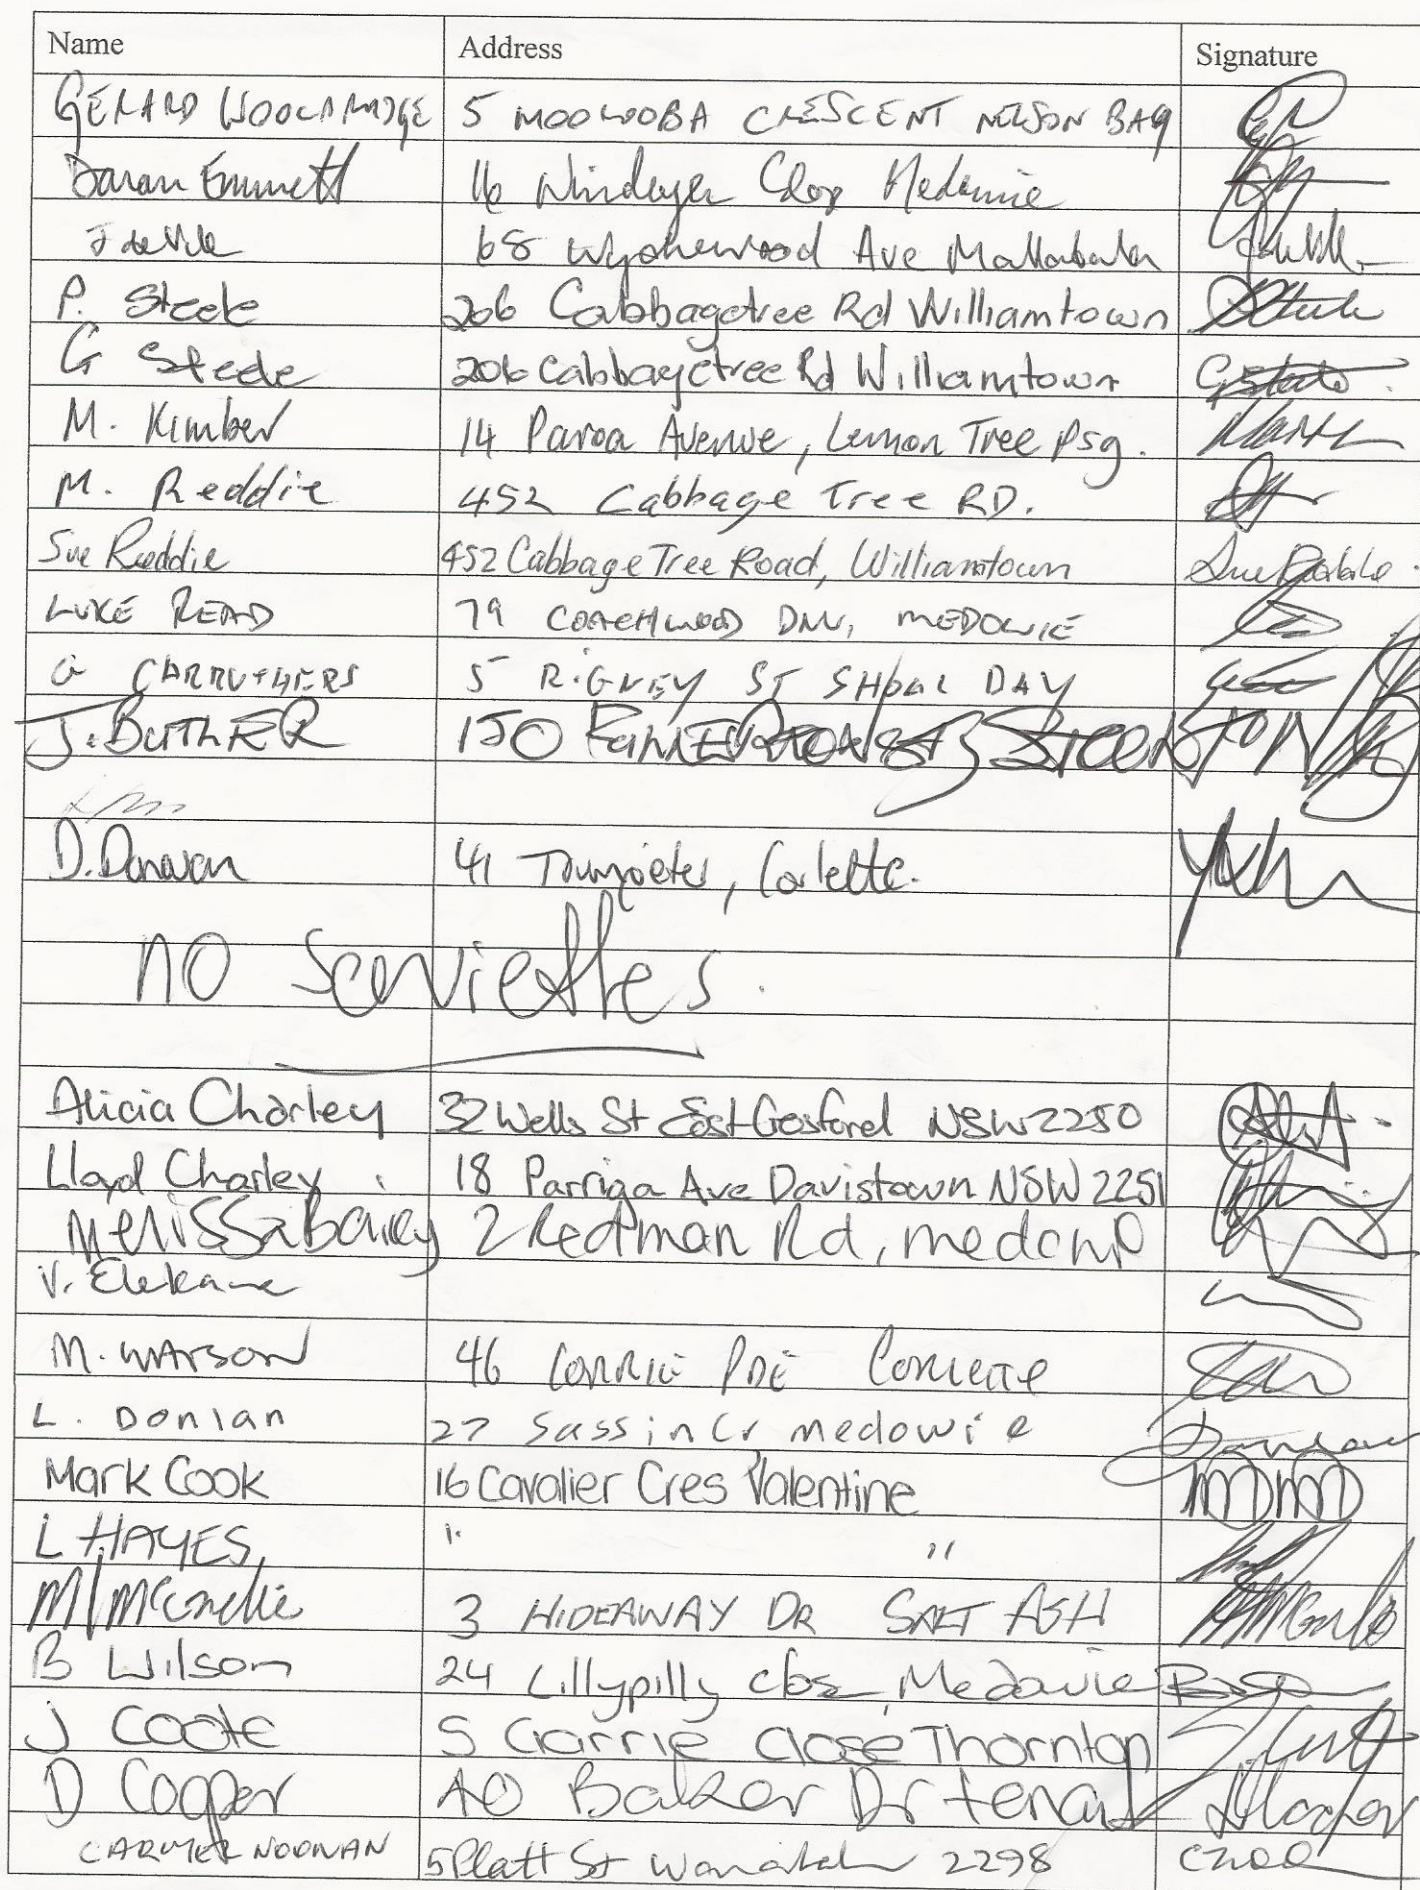 Name Address Signature
GERARD WOOLDRIDGE 5 MOOLOOBA CRESCENT NELSON BAY
Daran Emmett 16 Windeyer Close Medowie
J deVille 68 Wychewood Ave Mallabula
P. Steele 206 Cabbagetree Rd Williamtown
G Steele 206 Cabbagetree Rd Williamtown
M. Kimber 14 Paroa Avenue, Lemon Tree Psg.
M. Reddie 452 Cabbage Tree RD.
Sue Reddie 452 Cabbage Tree Road, Williamtown
LUKE READ 79 COACHWOOD DRV, MEDOWIE
G CARRUTHERS 5 RIGNEY ST SHOAL BAY
J. BUTLER 150
D. Donovan 41 Trumpeter, Corlette.
NO Scerviettes.
Alicia Charley 32 Wells St East Gosford NSW 2250
Lloyd Charley 18 Parriga Ave Davistown NSW 2251
Melissa Bailey 2 Redman Rd, medowie
V.
M. WATSON 46 CORRIE PDE CORLETTE
L. DONLAN 27 Sassin Cr medowie
Mark Cook 16 Cavalier Cres Valentine
L HAYES " "
3 HIDEAWAY DR SALT ASH
B Wilson 24 Lillypilly close, Medowie
J Coote 5 Carrie Close Thornton
D Cooper 40 Baker Dr
CARMEL NOONAN 5 Platt St Waratah 2298